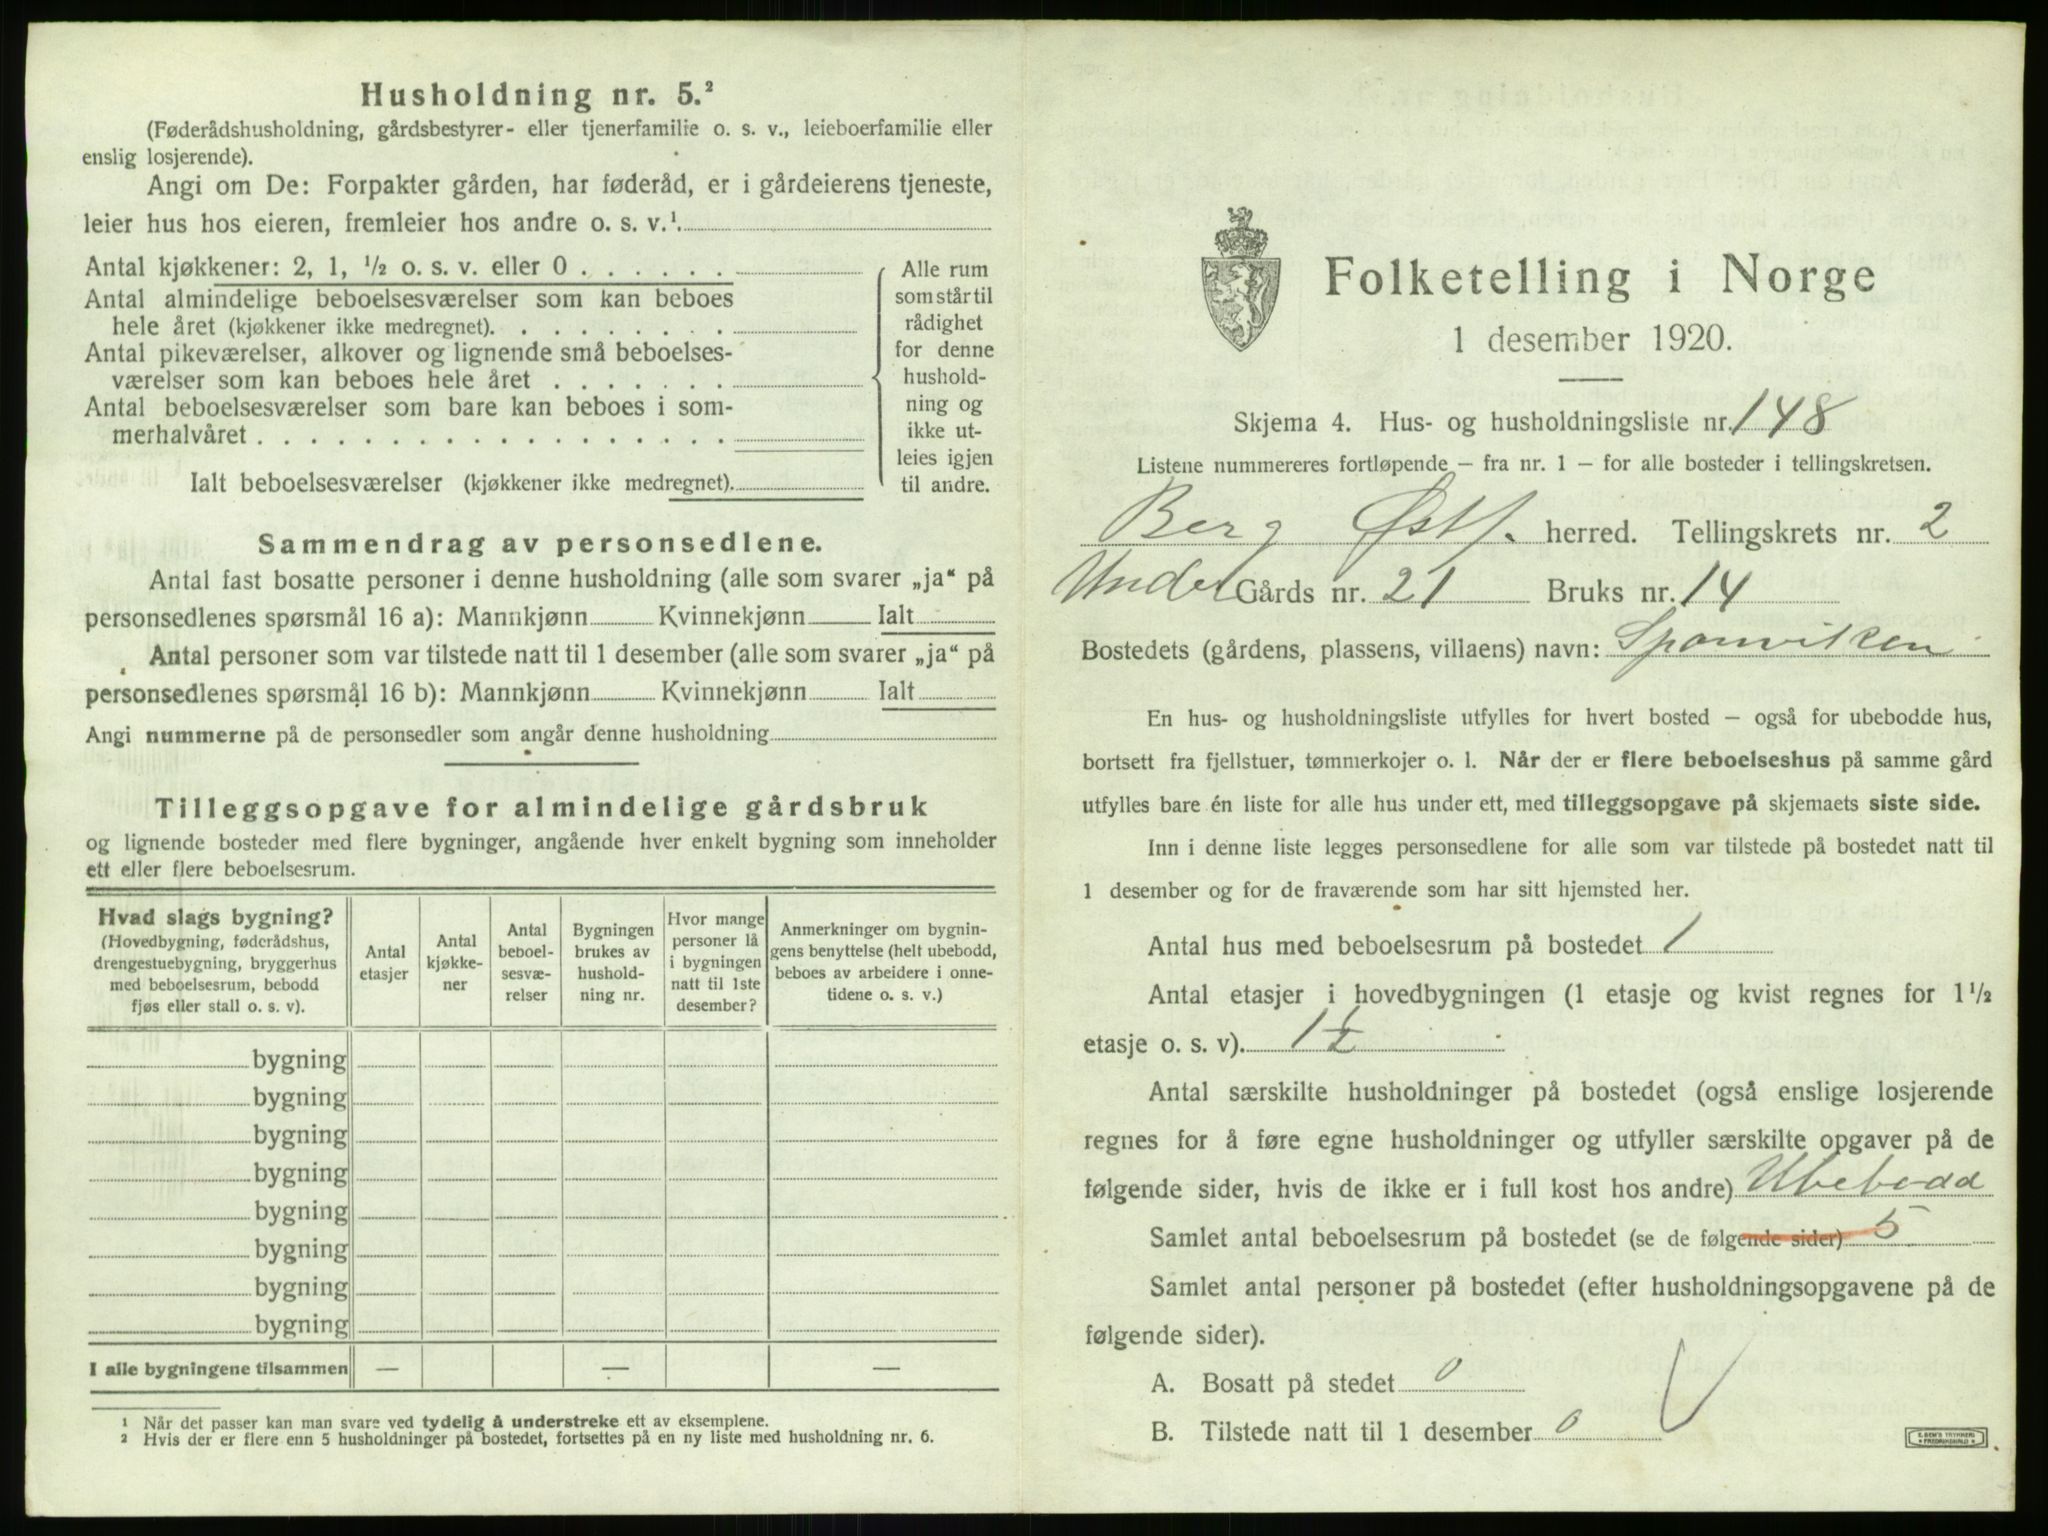 Husholdning nr. 5.²
(Føderådshusholdning, gårdsbestyrer- eller tjenerfamilie o. s. v., leieboerfamilie eller
enslig losjerende).
Angi om De: Forpakter gården, har føderåd, er i gårdeierens tjeneste,
leier hus hos eieren, fremleier hos andre o. s. v.¹
Antal kjøkkener: 2, 1, ½ o. s. v. eller 0 . . . . . .
Antal almindelige beboelsesværelser som kan beboes
hele året (kjøkkener ikke medregnet). . . . . . . .
Antal pikeværelser, alkover og lignende små beboelses-
værelser som kan beboes hele året . . . . . . .
Antal beboelsesværelser som bare kan beboes i som-
merhalvåret . . . . . . . . . . . . . . . . . . .
Ialt beboelsesværelser (kjøkkener ikke medregnet).
Alle rum
som står til
rådighet
for denne
hushold-
ning og
ikke ut-
leies igjen
til andre.
Sammendrag av personsedlene.
Antal fast bosatte personer i denne husholdning (alle som svarer „ja“ på
personsedlenes spørsmål 16 a): Mannkjønn Kvinnekjønn Ialt
Antal personer som var tilstede natt til 1 desember (alle som svarer „ja“ på
personsedlenes spørsmål 16 b): Mannkjønn Kvinnekjønn Ialt
Angi nummerne på de personsedler som angår denne husholdning
Tilleggsopgave for almindelige gårdsbruk
og lignende bosteder med flere bygninger, angående hver enkelt bygning som inneholder
ett eller flere beboelsesrum.
Hvad slags bygning?
(Hovedbygning, føderådshus,
drengestuebygning, bryggerhus
med beboelsesrum, bebodd
fjøs eller stall o. s. v).
Antal
etasjer
Antal
kjøkke-
ner
Antal
beboel-
sesvæ-
relser
Bygningen
brukes av
hushold-
ning nr.
Hvor mange
personer lå
i bygningen
natt til 1ste
desember?
Anmerkninger om bygnin-
gens benyttelse (helt ubebodd,
beboes av arbeidere i onne-
tidene o. s. v.)
bygning
bygning
bygning
bygning
bygning
bygning
bygning
bygning
I alle bygningene tilsammen — — —
¹ Når det passer kan man svare ved tydelig å understreke ett av eksemplene.
² Hvis der er flere enn 5 husholdninger på bostedet, fortsettes på en ny liste med husholdning nr. 6.
Folketelling i Norge
1 desember 1920.
Skjema 4. Hus- og husholdningsliste nr. 148
Listene nummereres fortløpende — fra nr. 1 — for alle bosteder i tellingskretsen.
Berg Østf. herred. Tellingskrets nr. 2
Under Gårds nr. 21 Bruks nr. 14
Bostedets (gårdens, plassens, villaens) navn: Sponviken
En hus- og husholdningsliste utfylles for hvert bosted — også for ubebodde hus,
bortsett fra fjellstuer, tømmerkojer o. l. Når der er flere beboelseshus på samme gård
utfylles bare én liste for alle hus under ett, med tilleggsopgave på skjemaets siste side.
Inn i denne liste legges personsedlene for alle som var tilstede på bostedet natt til
1 desember og for de fraværende som har sitt hjemsted her.
Antal hus med beboelsesrum på bostedet 1
Antal etasjer i hovedbygningen (1 etasje og kvist regnes for 1½
etasje o. s. v). 1½
Antal særskilte husholdninger på bostedet (også enslige losjerende
regnes for å føre egne husholdninger og utfyller særskilte opgaver på de
følgende sider, hvis de ikke er i full kost hos andre) Ubebodd
Samlet antal beboelsesrum på bostedet (se de følgende sider) 5
Samlet antal personer på bostedet (efter husholdningsopgavene på de
følgende sider).
A. Bosatt på stedet 0
B. Tilstede natt til 1 desember 0